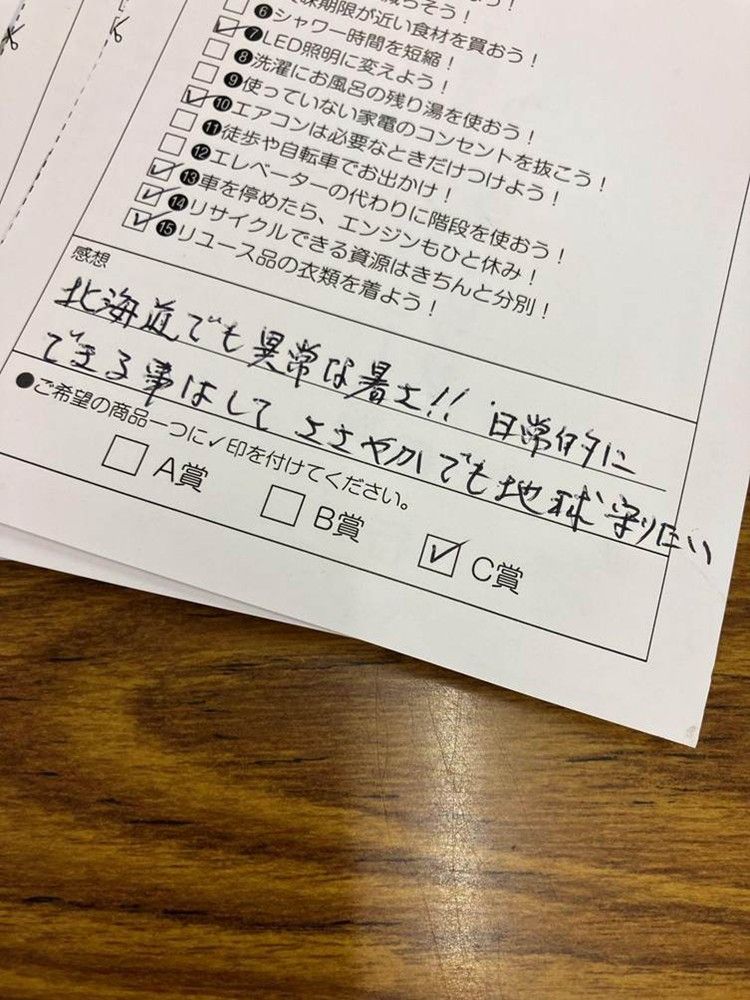 減らそう！
味期限が近い食材を買おう！
❻シャワー時間を短縮！
❼LED照明に変えよう！
❽洗濯にお風呂の残り湯を使おう！
❾使っていない家電のコンセントを抜こう！
❿エアコンは必要なときだけつけよう！
⓫徒歩や自転車でお出かけ！
⓬エレベーターの代わりに階段を使おう！
⓭車を停めたら、エンジンもひと休み！
⓮リサイクルできる資源はきちんと分別！
⓯リユース品の衣類を着よう！
感想
北海道でも異常な暑さ!! 日常的に
できる事はして ささやかでも地球守りたい
●ご希望の商品一つに✓印を付けてください。
A賞 B賞 C賞